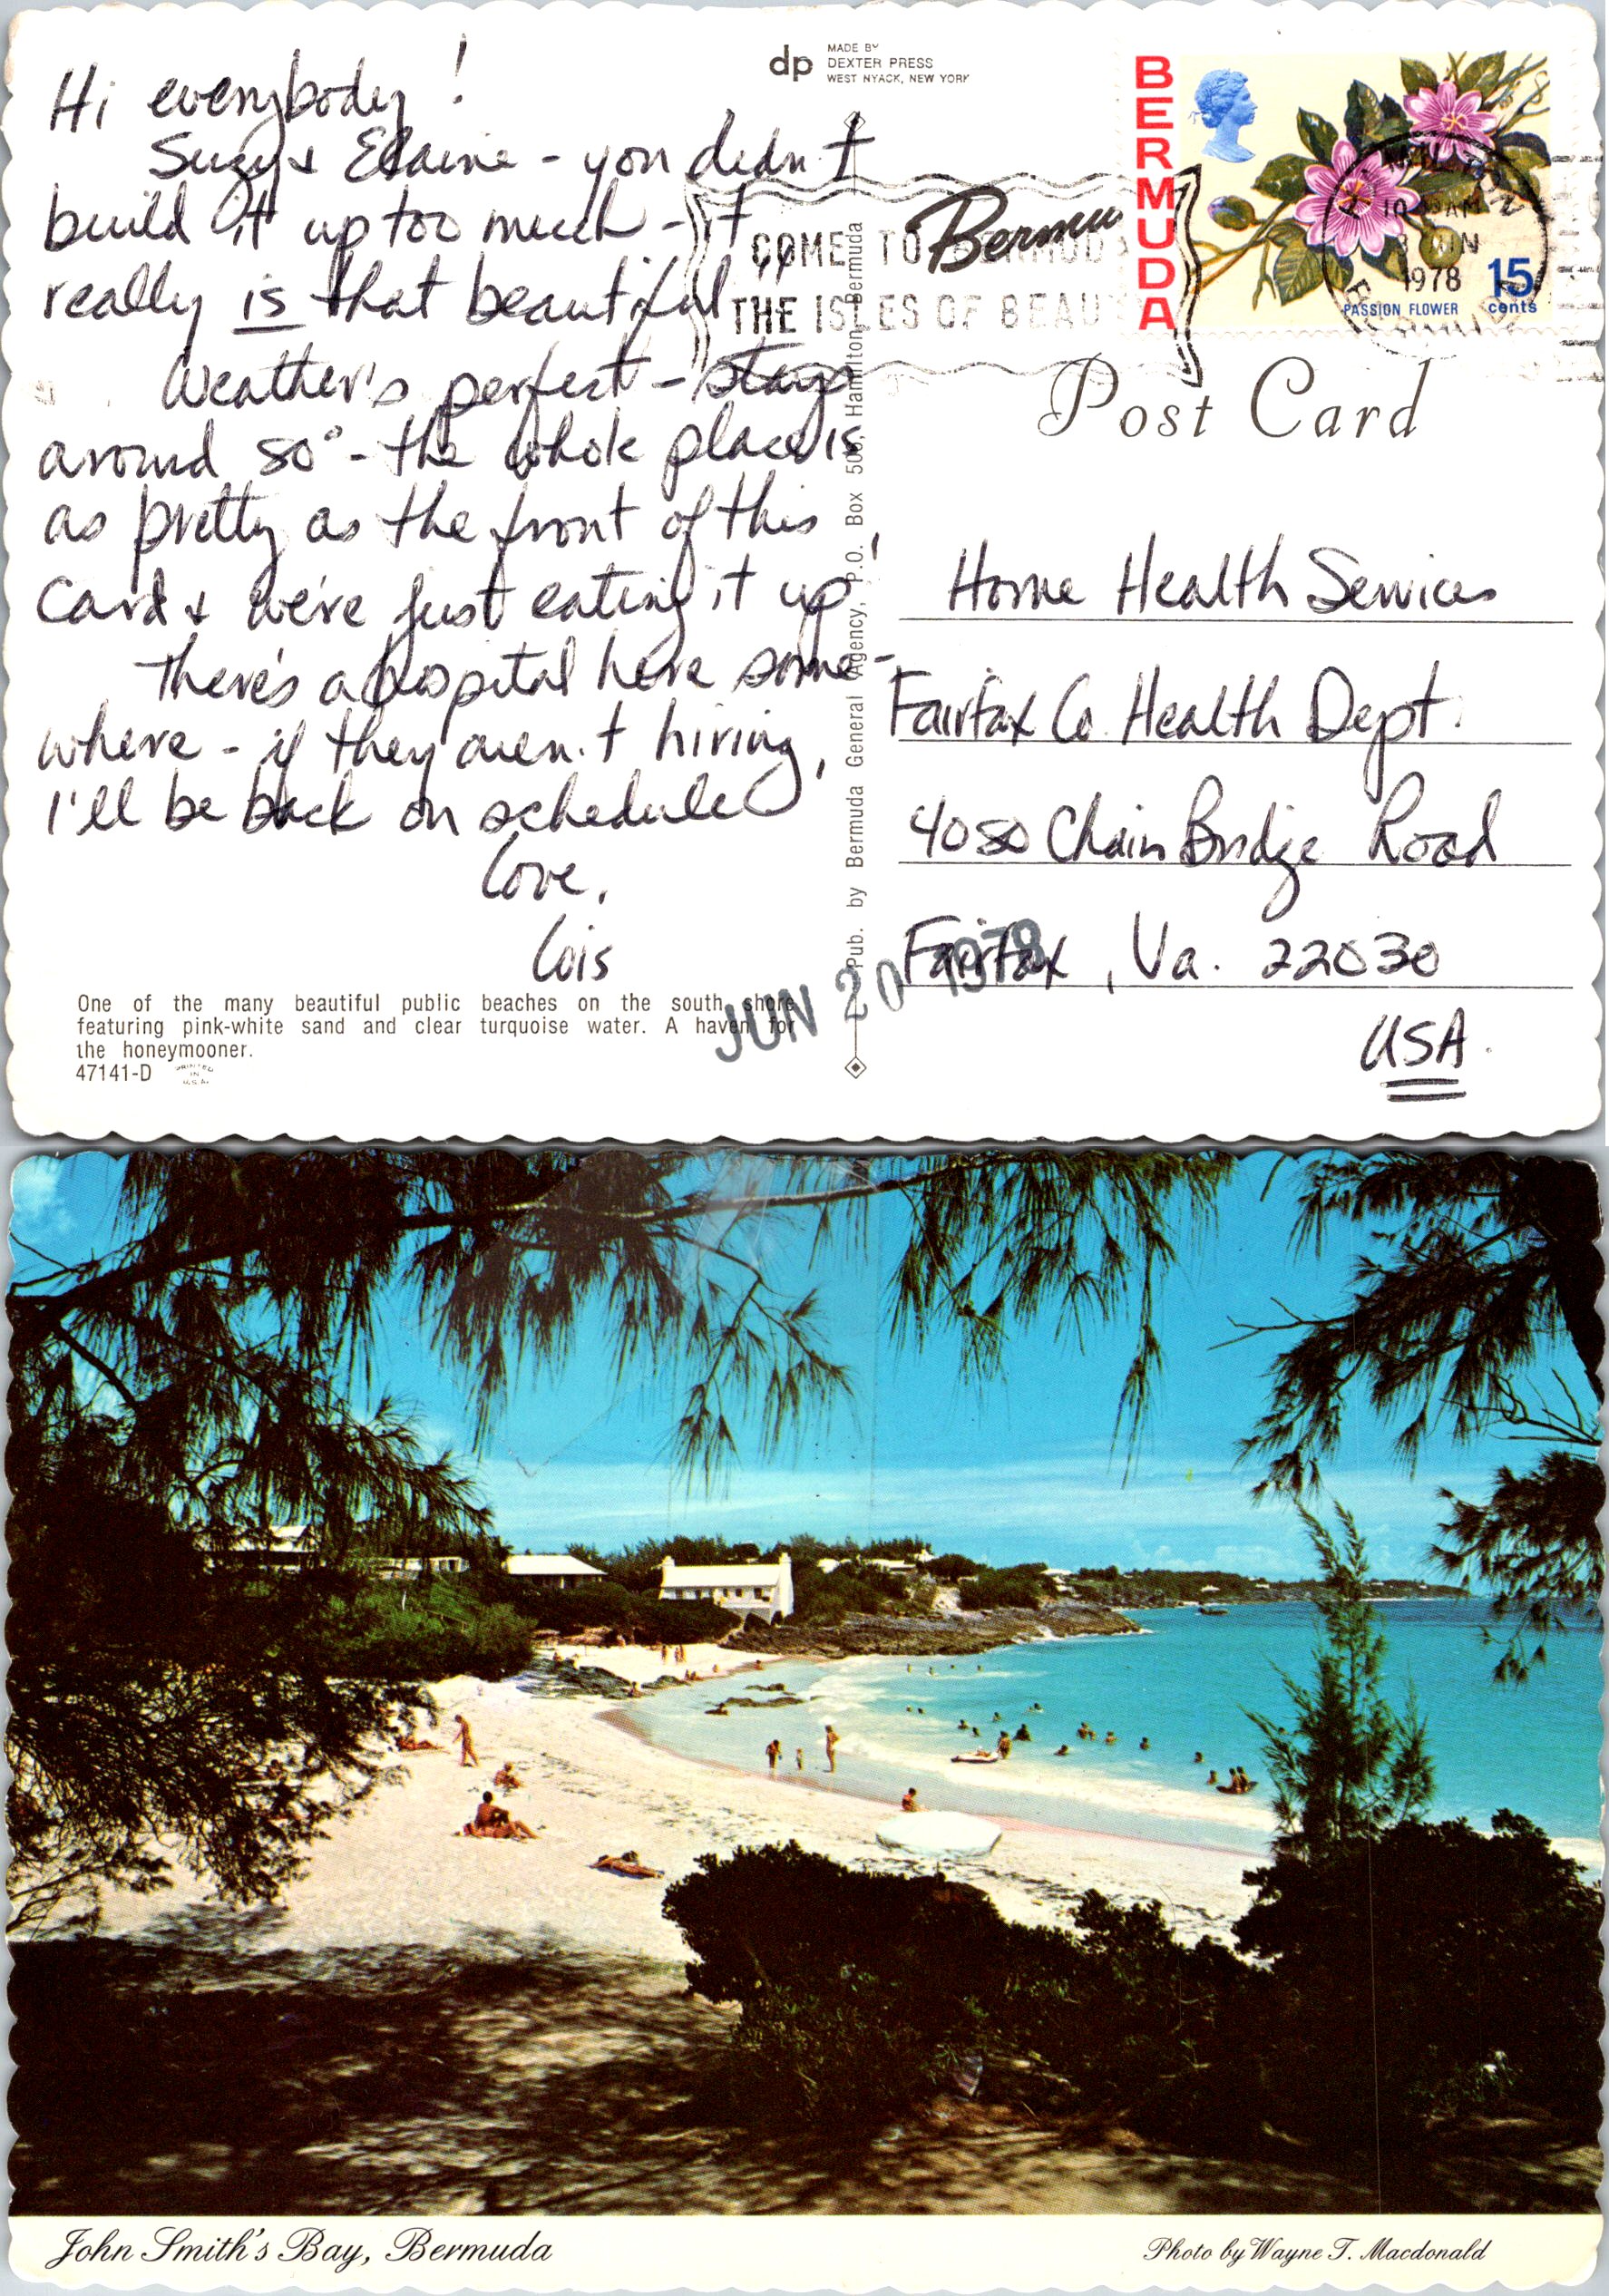 Hi everybody!
Suzy & Elaine - you didn't
build it up too much - it
really is that beautiful!
Weather's perfect - stays
around 80° - the whole place is
as pretty as the front of this
card & we're just eating it up!
There's a hospital here some-
where - if they aren't hiring,
I'll be back on schedule
Love,
Lois
One of the many beautiful public beaches on the south shore
featuring pink-white sand and clear turquoise water. A haven for
the honeymooner.
47141-D
PRINTED
IN
U.S.A.
dp
MADE BY
DEXTER PRESS
WEST NYACK, NEW YORK
Pub. by Bermuda General Agency, P.O. Box 506, Hamilton, Bermuda
COME TO BERMUDA
THE ISLES OF BEAU
Bermu
BERMUDA
10 AM
JUN
1978
PASSION FLOWER
15
cents
Post Card
Home Health Services
Fairfax Co. Health Dept.
4080 Chain Bridge Road
Fairfax, Va. 22030
USA
JUN 20 1978
John Smith's Bay, Bermuda
Photo by Wayne T. Macdonald